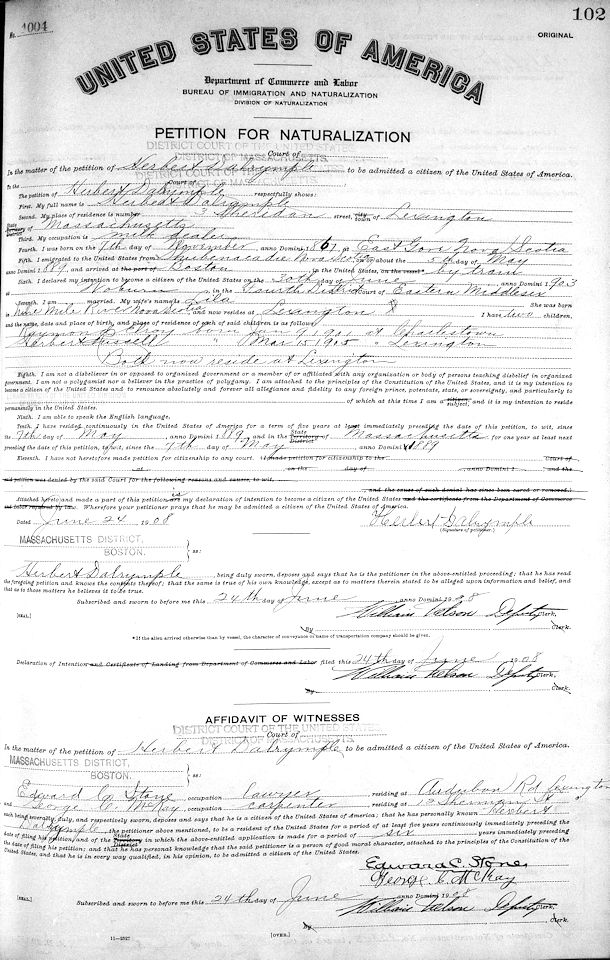 102
No. 1004
ORIGINAL
UNITED STATES OF AMERICA
Department of Commerce and Labor
BUREAU OF IMMIGRATION AND NATURALIZATION
DIVISION OF NATURALIZATION
PETITION FOR NATURALIZATION
DISTRICT COURT OF THE UNITED STATES
Court of
DISTRICT OF MASSACHUSETTS
In the matter of the petition of Herbert Dalrymple to be admitted a citizen of the United States of America.
In the Court of
The petition of Herbert Dalrymple respectfully shows:
First. My full name is Herbert Dalrymple
Second. My place of residence is number 3 Sheridan street, city town of Lexington
State Massachusetts
Third. My occupation is milk dealer
Fourth. I was born on the 7th day of November, anno Domini 1867 at East Gore Nova Scotia
Fifth. I emigrated to the United States from Shubenacadie Nova Scotia on or about the 5th day of May
anno Domini 1889, and arrived at the port of Boston in the United States, on the vessel by train
Sixth. I declared my intention to become a citizen of the United States on the 30th day of June anno Domini 1903
at Woburn in the Fourth District Court of Eastern Middlesex
Seventh. I am married. My wife's name is Lila She was born
in Nine Mile River Nova Scotia and now resides at Lexington I have two children,
and the name, date and place of birth, and place of residence of each of said children is as follows:
Elroy born 1901 at Charlestown
Herbert Russell " Mar 15 1905 " Lexington
Both now reside at Lexington
Eighth. I am not a disbeliever in or opposed to organized government or a member of or affiliated with any organization or body of persons teaching disbelief in organized
government. I am not a polygamist nor a believer in the practice of polygamy. I am attached to the principles of the Constitution of the United States, and it is my intention to
become a citizen of the United States and to renounce absolutely and forever all allegiance and fidelity to any foreign prince, potentate, state, or sovereignty, and particularly to
of which at this time I am a citizen subject, and it is my intention to reside
permanently in the United States.
Ninth. I am able to speak the English language.
Tenth. I have resided continuously in the United States of America for a term of five years at least immediately preceding the date of this petition, to wit, since
the 7th day of May, anno Domini 1889, and in the State Territory District of Massachusetts for one year at least next
preceding the date of this petition, to wit, since the 7th day of May, anno Domini 1889
Eleventh. I have not heretofore made petition for citizenship to any court. (I made petition for citizenship to the Court of
at on the day of anno Domini 1 and the
said petition was denied by the said Court for the following reasons and causes, to wit,
and the cause of such denial has since been cured or removed.)
Attached hereto and made a part of this petition is my declaration of intention to become a citizen of the United States and the certificate from the Department of Commerce
and Labor required by law. Wherefore your petitioner prays that he may be admitted a citizen of the United States of America.
Dated June 24 1908
Herbert Dalrymple
(Signature of petitioner.)
MASSACHUSETTS DISTRICT,
BOSTON. } ss:
Herbert Dalrymple being duly sworn, deposes and says that he is the petitioner in the above-entitled proceeding; that he has read
the foregoing petition and knows the contents thereof; that the same is true of his own knowledge, except as to matters therein stated to be alleged upon information and belief, and
that as to those matters he believes it to be true.
Subscribed and sworn to before me this 24th day of June anno Domini 1908
[SEAL.]
William Nelson Deputy Clerk.
By Clerk.
*If the alien arrived otherwise than by vessel, the character of conveyance or name of transportation company should be given.
Declaration of Intention and Certificate of Landing from Department of Commerce and Labor filed this 24th day of June 1908
William Nelson Deputy Clerk.
By Clerk.
AFFIDAVIT OF WITNESSES
DISTRICT COURT OF THE UNITED STATES
Court of
DISTRICT OF MASSACHUSETTS
In the matter of the petition of Herbert Dalrymple to be admitted a citizen of the United States of America.
MASSACHUSETTS DISTRICT,
BOSTON. } ss:
Edward C. Stone, occupation lawyer residing at Audubon Rd Lexington
and George C. McKay, occupation carpenter residing at 12 Sherman St
each being severally, duly, and respectively sworn, deposes and says that he is a citizen of the United States of America; that he has personally known Herbert
Dalrymple, the petitioner above mentioned, to be a resident of the United States for a period of at least five years continuously immediately preceding the
date of filing his petition, and of the State Territory District in which the above-entitled application is made for a period of six years immediately preceding
the date of filing his petition; and that he has personal knowledge that the said petitioner is a person of good moral character, attached to the principles of the Constitution of the
United States, and that he is in every way qualified, in his opinion, to be admitted a citizen of the United States.
Edward C. Stone
George C. McKay
Subscribed and sworn to before me this 24th day of June anno Domini 1908
[SEAL.]
William Nelson Deputy Clerk.
By Clerk.
11-2527
[OVER.]